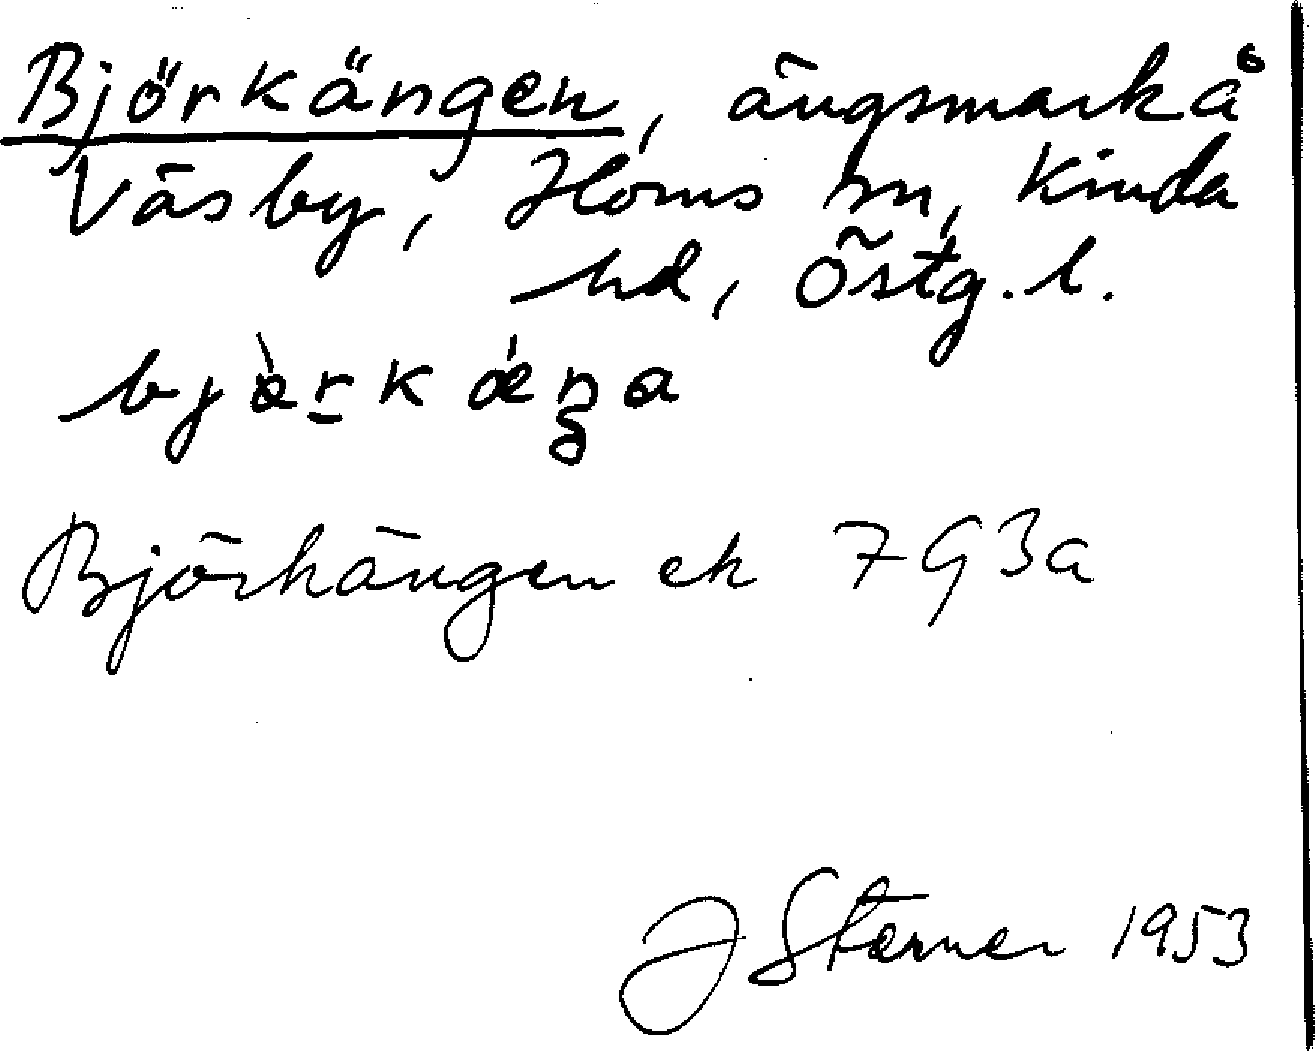 Björkängen, ängsmark å
Väsby, Horns sn, Kinda
hd, Östg. l.
bjàrkǽŋa
Björkängen ek 7G3a
J Sterner 1953